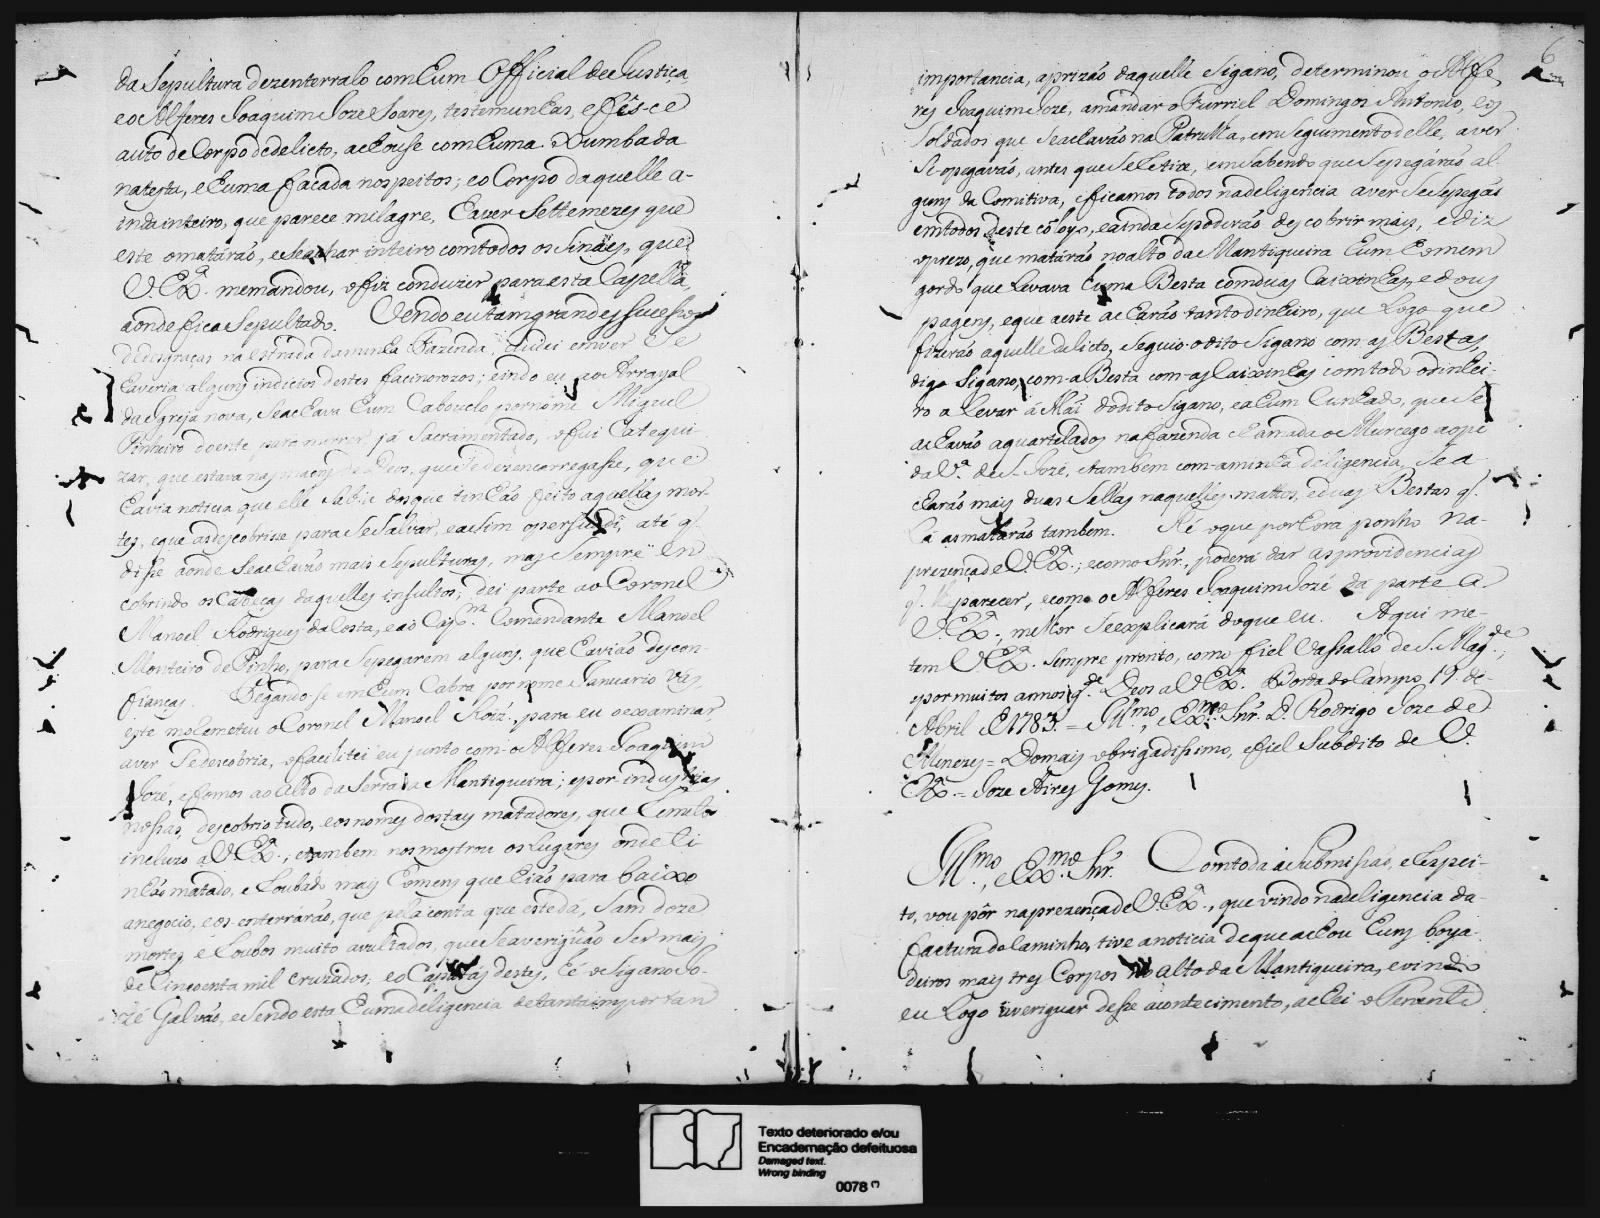 da Sepultura dezenterralo com hum Official de Justiça
e o Alferes Joaquim Joze Soares, testemunhas, e fês-ce
auto de Corpo de delicto, achouse com huma Xumbada
na testa, e huma facada nos peitos; e o Corpo daquelle a-
inda inteiro, que parece milagre, haver Sette mezes que
este o matárão, e se achar inteiro com todos os Sináes, que
V. Exª. me mandou, o fiz conduzir para esta Capella,
aonde fica Sepultado. Vendo eu tam grandes sucessos
de desgraças na estrada da minha Fazenda, cuidei em ver Se
haveria alguns indicios destes facinorozos; e indo eu ao Arrayal
da Igreja nova, Se achava hum Cabouclo por nome Miguel
Pinheiro doente para morrer já Sacramentado, o fui Catequi-
zar, que estava nas maons de Deos, que Se dezencarregasse, que
havia noticia que elle Sabia dos que tinhão feito aquellas mor-
tes, e que as descobrisse para Se Salvar, e asim o persuadi, até q'.
disse aonde Se achavão mais Sepulturas, mas Sempre en
cobrindo os Cabeças daquelles insultos; dei parte ao Coronel
Manoel Rodrigues da Costa, e ao Capᵐ. Comandante Manoel
Monteiro de Pinho, para Se pegarem alguns, que havião descon-
fianças. Pegando-se em hum Cabra por nome Januario Vas
este mo Remeteu o Coronel Manoel Roiz., para eu o examinar,
a ver Se descobria, o facilitei eu junto com o Alferes Joaquim
Jozé, e fomos ao alto da Serra da Mantiqueira; e por industrias
nossas, descobrio tudo, e os nomes dos taes matadores, que Remeto
incluzo a V. Exª.; e tambem nos mostrou os Lugares onde ti
nhão matado, e Roubado mais homens que hião para baixo
a negocio, e os enterrárão, que pela conta que este dá, Sam doze
mortes e Roubos muito avultados, que Se averigüão Ser mais
de Sincoenta mil cruzados; e o Capatás destes, hé o Sigano Jo-
zé Galvão, e Sendo esta huma deligencia de tanta importan
6
importancia, a prizão daquelle Sigano, determinou o Alfe
res Joaquim Jozé, a mandar o Furriel Domingos Antonio, e os
Soldados que Se achavão na Patrulha, em seguimento delle, a ver
Se o pegavão, antes que Se Retire, em sabendo que Se pegárão al-
guns da Comitiva, e ficamos todos na deligencia a ver Se Se pegão
em todos deste cõloyo, e ainda Se poderão descobrir mais, e diz
o prezo, que matárão no alto da Mantiqueira hum homem
gordo que Levava huma Besta com duas Caixinhas, e dous
pagens, e que a este acharão tanto dinheiro, que Logo que
fizerão aquelle delicto, Seguio o dito Sigano com as Bestas,
digo Sigano, com a Besta com as Caixinhas e com todo o dinhei-
ro a Levar á Mãi do dito Sigano, e a hum Cunhado, que Se
achavão aquartelados na fazenda chamada o Murcego ao pé
da Vª. de S. José, e tambem com a minha deligencia Se a
charão mais duas Sellas naquelles mattos, e duas Bestas q'.
Lá as matárão tambem. Hé o que por hora ponho na-
prezença de V. Exª.; e como Snr., poderá dar as providencias
q'. lhe parecer, e como o Alferes Joaquim Jozé dá parte a
V. Exª., melhor Se explicará do que eu. Aqui me-
tem V. Exª. Sempre pronto, como fiel Vassallo de S. Magᵈᵉ.;
e por muitos annos g.ᵈᵉ Deos a V. Exª. Borda do Campo 19. de-
Abril de 1783. = Illmo, e Exmo. Snr. D. Rodrigo Joze de
Menezes = Do mais obrigadissimo, e fiel Subdito de V.
Exª. = Joze Aires Gomes.
Illmo., e Exmo. Snr. Com toda a Submissão, e Respei-
to, vou pôr na prezença de V. Exª., que vindo na deligencia da-
factura do Caminho, tive a noticia de que achou huns boya-
deiros mais tres Corpos no alto da Mantiqueira, e vindo
eu Logo averiguar desse acontecimento, achei o Tenente
Texto deteriorado e/ou
Encadernação defeituosa
Damaged text.
Wrong binding
0078